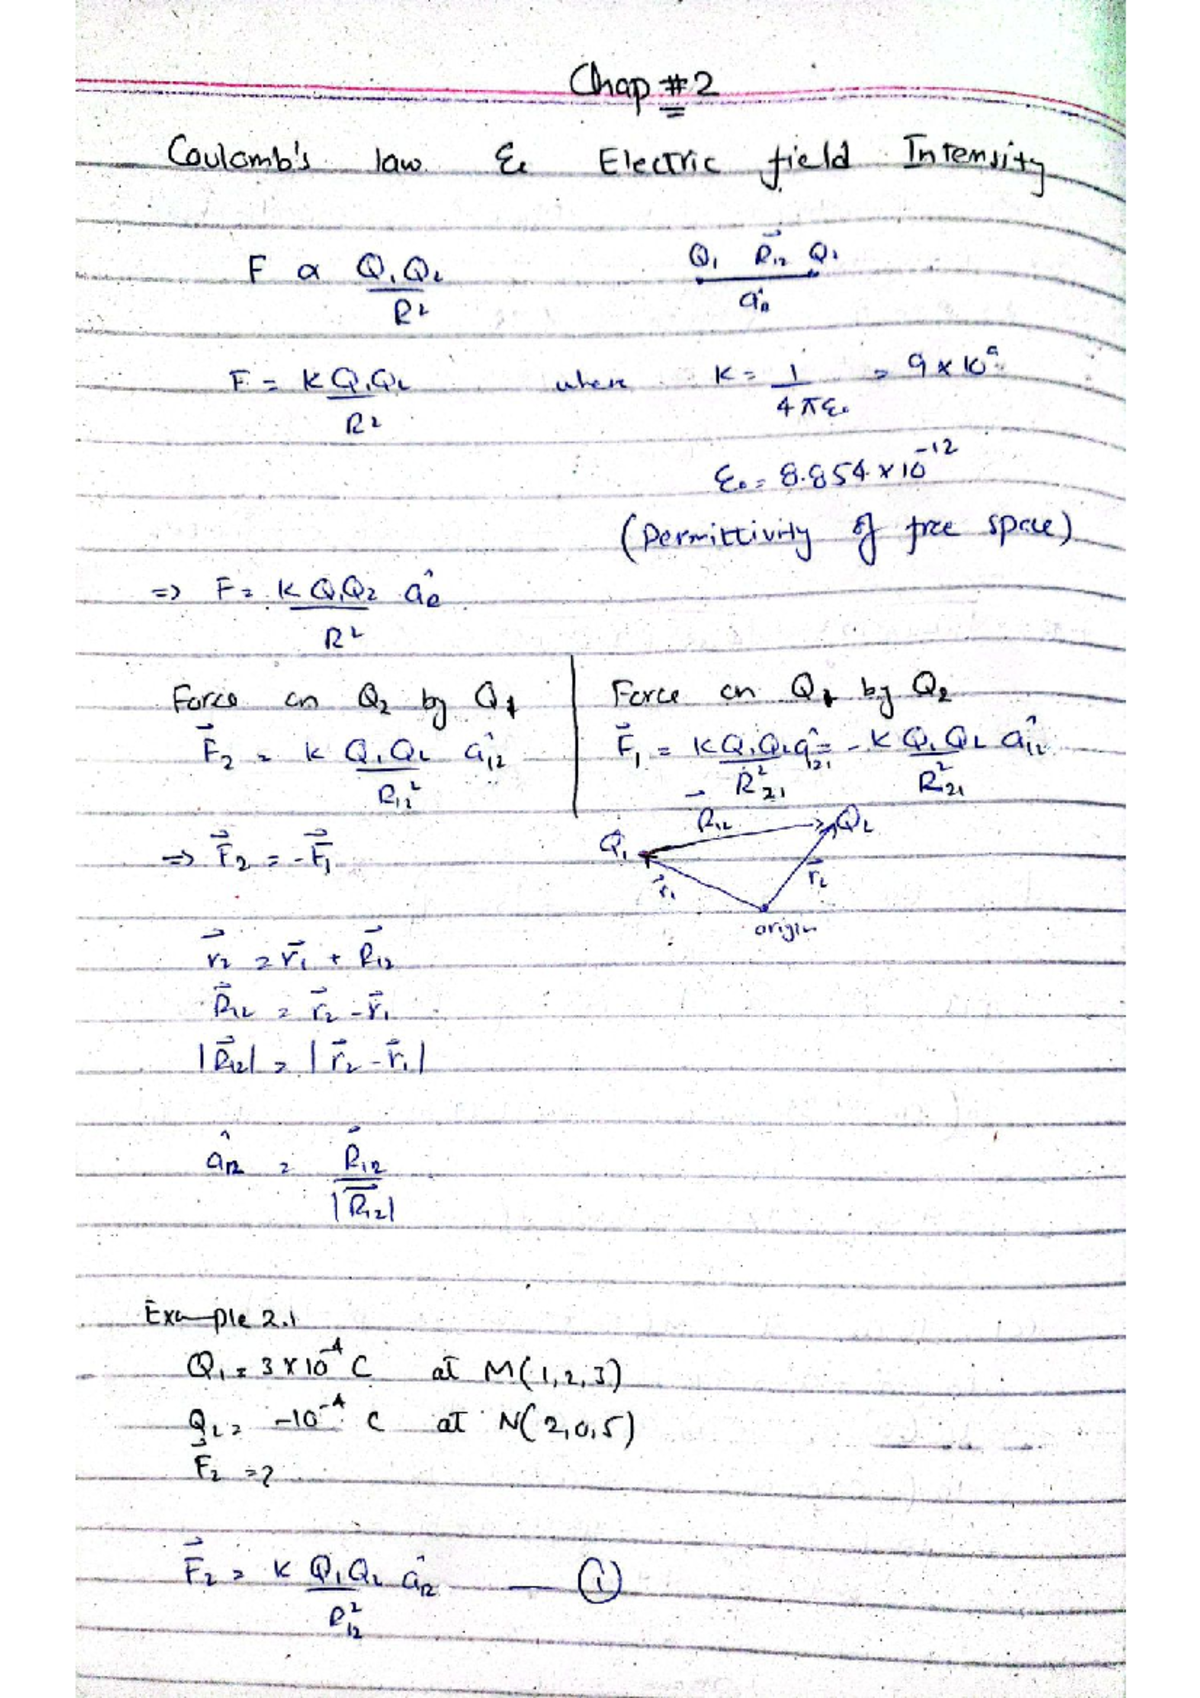 Chap #2
Coulomb's law & Electric field Intensity
F α Q₁Q₂ / R²
Q₁ R⃗₁₂ Q₂
â_R
F = KQ₁Q₂ / R² where K = 1 / 4πε₀ = 9 × 10⁹
ε₀ = 8.854 × 10⁻¹²
(Permittivity of free space)
=> F = K Q₁Q₂ / R² â_R
Force on Q₂ by Q₁
F⃗₂ = K Q₁Q₂ / R₁₂² â₁₂
Force on Q₁ by Q₂
F⃗₁ = KQ₁Q₂ / R²₂₁ â₂₁ = -K Q₁Q₂ / R²₂₁ â₁₂
=> F⃗₂ = -F⃗₁
R⃗₁₂
Q₁ Q₂
r⃗₁ r⃗₂
origin
r⃗₂ = r⃗₁ + R⃗₁₂
R⃗₁₂ = r⃗₂ - r⃗₁
|R⃗₁₂| = |r⃗₂ - r⃗₁|
â₁₂ = R⃗₁₂ / |R⃗₁₂|
Example 2.1
Q₁ = 3 × 10⁻⁴ C at M(1,2,3)
Q₂ = -10⁻⁴ C at N(2,0,5)
F⃗₂ = ?
F⃗₂ = K Q₁Q₂ / R²₁₂ â₁₂ — (1)